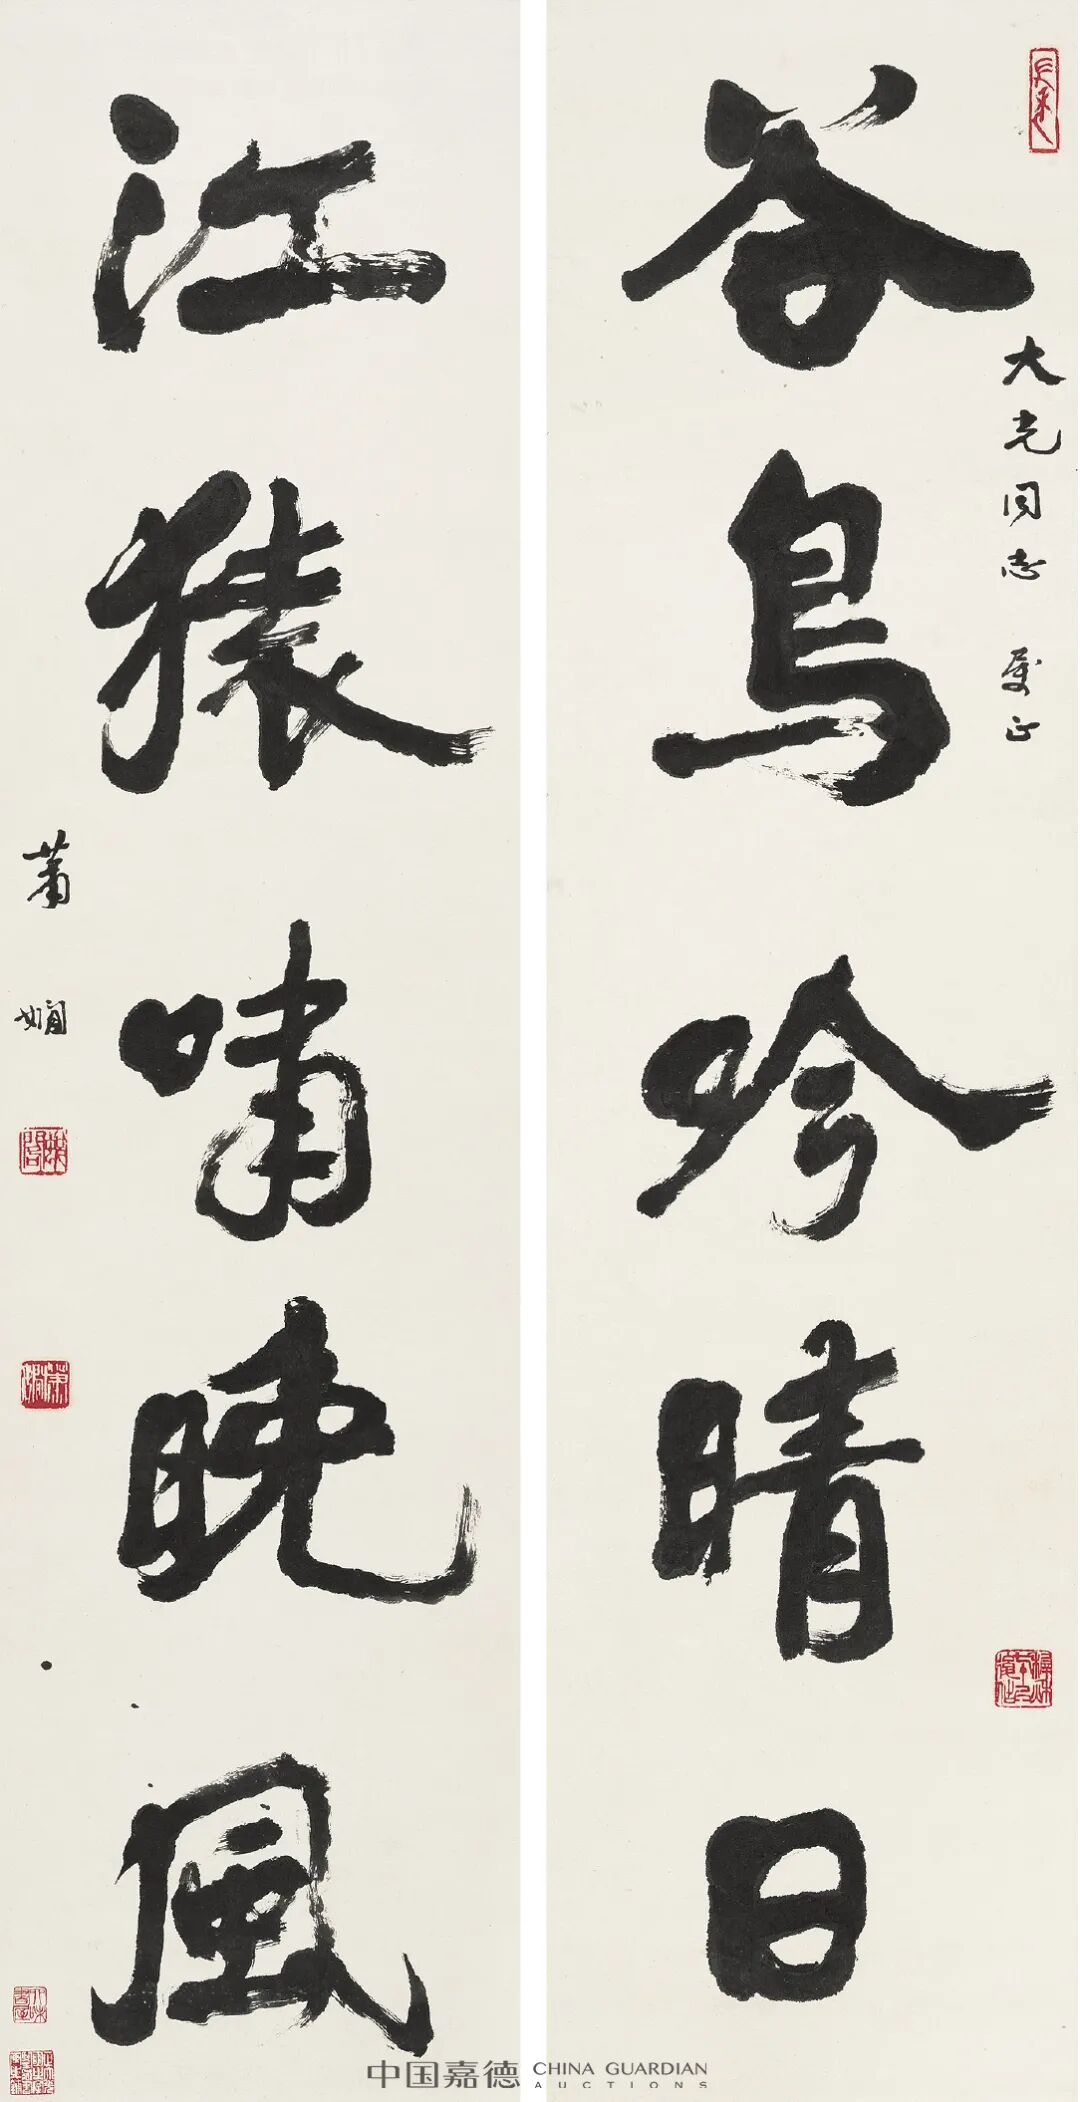 谷鳥吟晴日
大光同志 屬正
江猿嘯晚風
蕭嫻
中国嘉德 CHINA GUARDIAN AUCTIONS